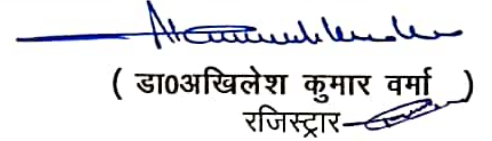 ( डा०अखिलेश कुमार वर्मा )
रजिस्ट्रार